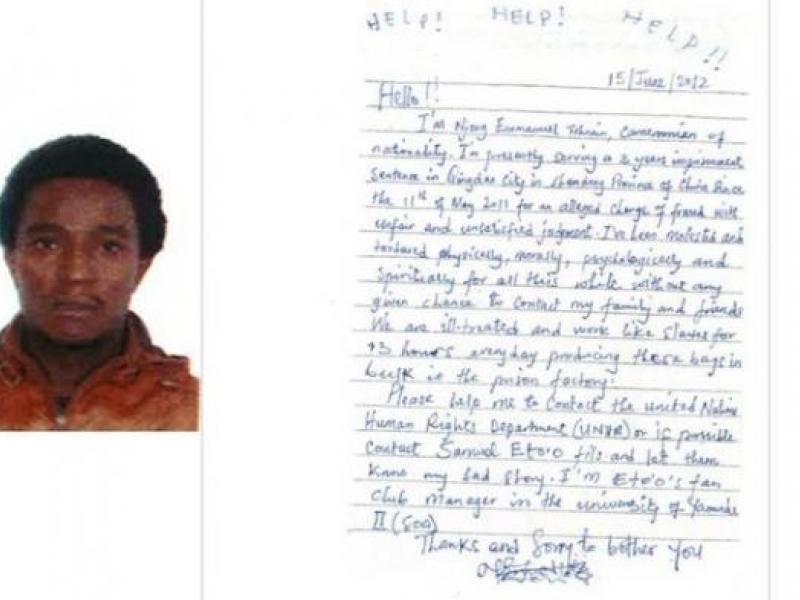 HELP! HELP! HELP!!
15/June/2012
Hello!!
I'm Njong Emmanuel Tohnain, Cameroonian of
nationality. I'm presently serving a 3 years imprisonment
sentence in Qingdao city in Shandong Province of China since
the 11th of May 2011 for an alleged charge of fraud with
unfair and unsatisfied judgment. I've been molested and
tortured physically, morally, psychologically and
spiritually for all this while without any
given chance to contact my family and friends
We are ill-treated and work like slaves for
13 hours everyday producing these bags in
bulk in the prison factory.
Please help me to contact the united Nations
Human Rights Department (UNHR) or if possible
contact Samuel Eto'o fils and let them
know my sad story. I'm Eto'o's fan
club manager in the university of Yaounde
II (Soa)
Thanks and Sorry to bother you